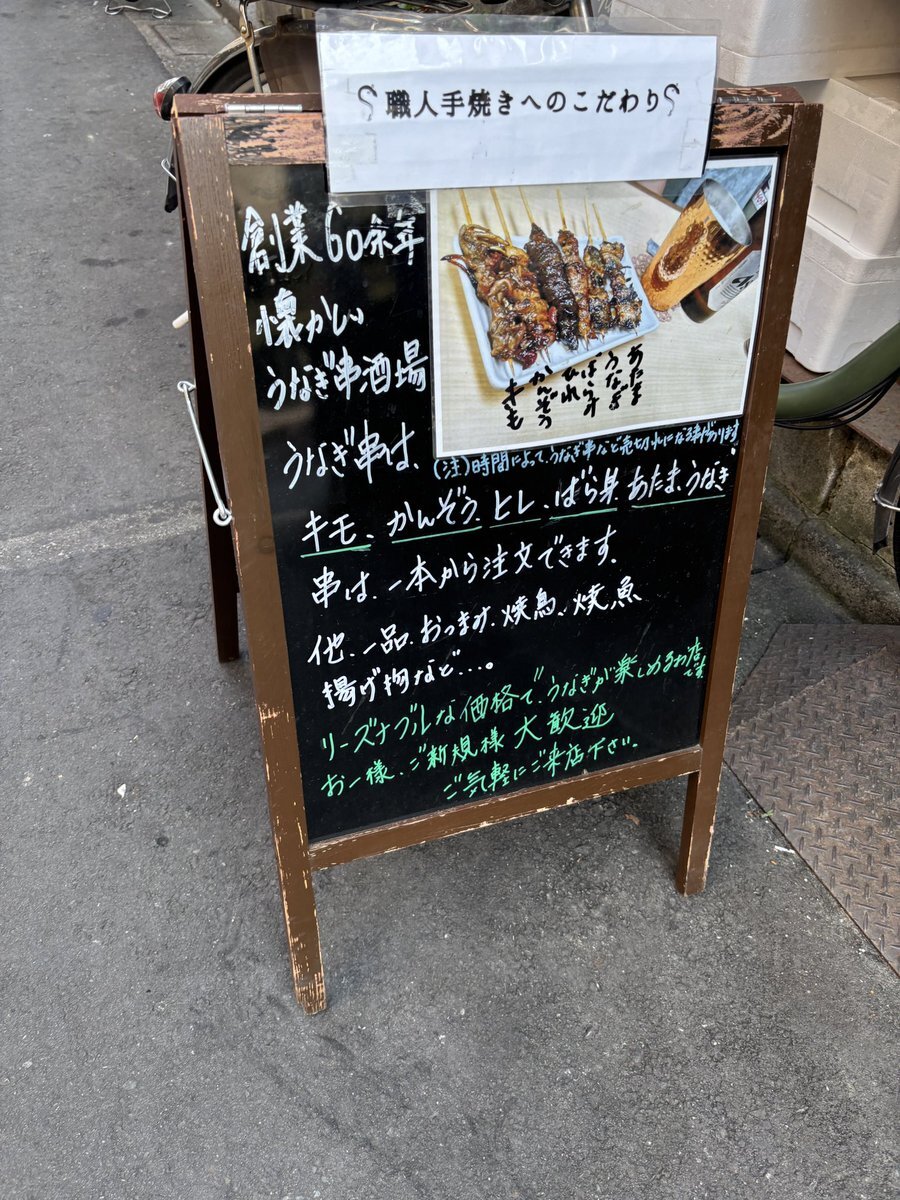 職人手焼きへのこだわり
創業60余年
懐かしい
うなぎ串酒場
あたま
うなぎ
ばら身
ひれ
かんぞう
キモ
(注)時間によって、うなぎ串など売切れになる事があります
うなぎ串は、
キモ、かんぞう、ヒレ、ばら身、あたま、うなぎ
串は、一本から注文できます。
他、一品、おつまみ、焼鳥、焼魚
揚げ物など…。
リーズナブルな価格で、うなぎが楽しめるお店です
お一様、ご新規様 大歓迎
ご気軽にご来店下さい。